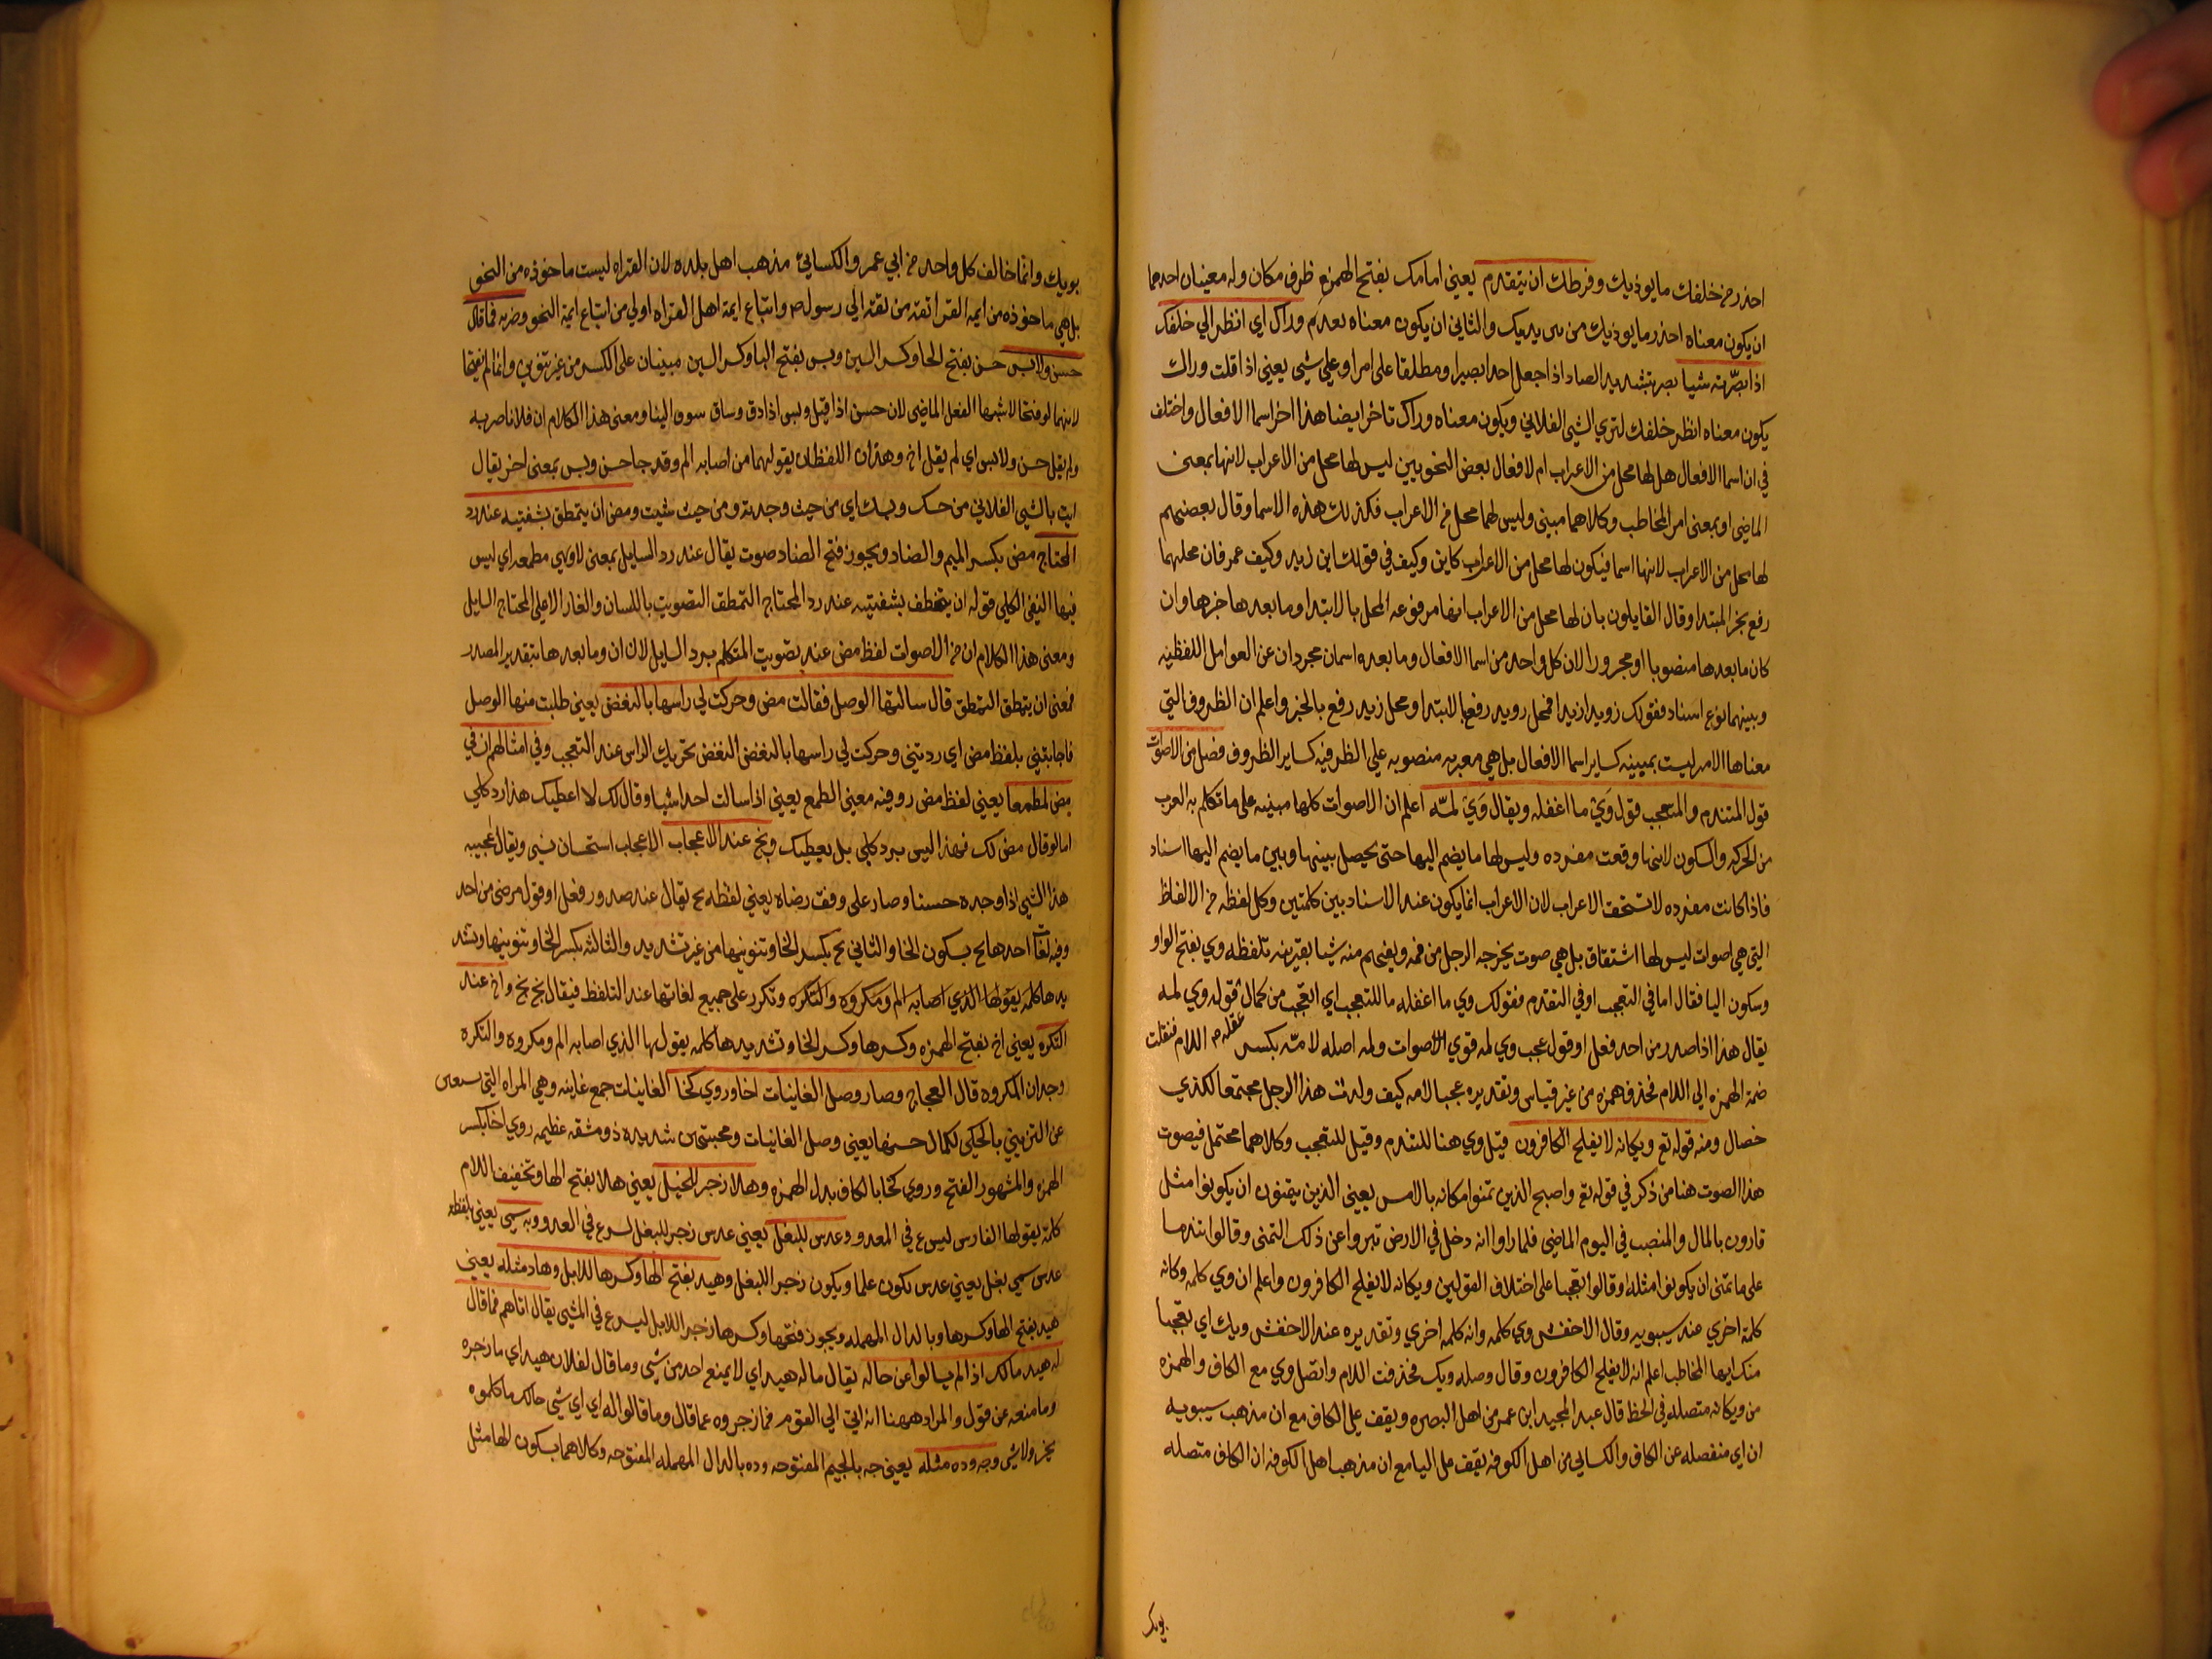 احذر من خلفك ما يوذيك وفرطك ان يتقدم يعني امامك بفتح الهمزه ظرف مكان وله معنيان احدهما
ان يكون معناه احذر ما يوذيك من بين يديك والثاني ان يكون معناه تقدم وراك اي انظر الي خلفك
اذا بصّرته شيا بصر بتشديد الصاد اذا جعل احدا بصيرا ومطلقا على امر او على شي يعني اذا قلت وراك
يكون معناه انظر خلفك لتري الشي الفلاني ويكون معناه وراك تاخر ايضا هذا اخر اسما الافعال واختلف
في ان اسما الافعال هل لها محل من الاعراب ام لا فقال بعض النحويين ليس لها محل من الاعراب لانها بمعنى
الماضي او بمعنى امر المخاطب وكلاهما مبني وليس لهما محل من الاعراب فكذلك هذه الاسما وقال بعضهم
لها محل من الاعراب لانها اسما فيكون لها محل من الاعراب كاين وكيف في قولك اين زيد وكيف عمر فان محلهما
رفع بخبر المبتدا وقال القايلون بان لها محل من الاعراب انها مرفوعه المحل بالابتدا وما بعدها خبرها وان
كان ما بعدها منصوبا او مجرورا لان كل واحد من اسما الافعال وما بعده اسمان مجردان عن العوامل اللفظيه
وبينهما نوع اسناد فقولك رويد زيدا فمحل رويد رفع بالابتدا ومحل زيد رفع بالخبر واعلم ان الظروف التي
معناها الامر ليست بمبينه كساير اسما الافعال بل هي معربه منصوبه علي الظرفيه كساير الظروف فصل من الاصوات
قول المتندم والمتعجب قول وَيْ ما اغفله ويقال وَيْ لمّه اعلم ان الاصوات كلها مبنيه على ما تكلم به العرب
من الحركه والسكون لانها وقعت مفرده وليس لها ما يضم اليها حتى يحصل بينها وبين ما يضم اليها اسناد
فاذا كانت مفرده لا تستحق الاعراب لان الاعراب انما يكون عند الاسناد بين كلمتين وكل لفظه من الالفاظ
التي هي اصوات ليس لها اشتقاق بل هي صوت يخرجه الرجل من فمه ويفهم منه شيا بقرينه تلفظه وي بفتح الواو
وسكون اليا فقال اما في التعجب او في التندم فقولك وي ما اغفله ما للتعجب اي اتعجب من كمال غفلته قوله وي لمه
يقال هذا اذا صدر من احد فعل او قول عجب وي لمه قوي الاصوات ولمه اصله لامّه بكسر اللام فنقلت
ضمة الهمزه الي اللام فحذف همزه من غير قياس وتقديره عجبا لامه كيف ولدت هذا الرجل مجتمعا لكذي
خصال ومنه قوله تع ويكانه لا يفلح الكافرون قيل وي هنا للتندم وقيل للتعجب وكلاهما محتمل فيصوت
هذا الصوت هنا من ذكر في قوله تع واصبح الذين تمنوا مكانه بالامس يعني الذين يتمنون ان يكونوا مثل
قارون بالمال والمنصب في اليوم الماضي فلما راوا انه دخل في الارض تبروا عن ذلك التمني وقالوا تندما
على ما تمنى ان يكونوا مثله او قالوا تعجبا على اختلاف القولين ويكانه لا يفلح الكافرون واعلم ان وي كلمه وكانه
كلمة اخري عند سيبويه وقال الاخفش وي كلمه وانه كلمه اخري وتقديره عند الاخفش ويك اي تعجبا
منك ايها المخاطب اعلم انه لا يفلح الكافرون وقال وصله ويك فحذفت اللام واتصل وي مع الكاف والهمزه
من ويكانه متصله في الخط قال عبد المجيد ابن عمر من اهل البصره ويقف على الكاف مع ان مذهب سيبويه
ان اي منفصله عن الكاف والكسايي من اهل الكوفه يقف على اليا مع ان مذهب اهل الكوفه ان الكاف متصله
بويك
بويك وانما خالف كل واحد من ابي عمرو والكسايئ مذهب اهل بلده لان القراه ليست ماخوذه من النحو
بل هي ماخوذه من ايمه القرا ثقه من ثقه الي رسول ص واتباع ايمة اهل القراه اولي من اتباع ايمة النحو وضربه فما قال
حسن ولا بس حس بفتح الحا وكسر السين وبس بفتح البا وكسر السين مبنيان على الكسر من غير تنوين وانما لم تفتحا
لانهما لو فتحا لاشبها الفعل الماضي لان حسن اذا قيل وبس اذا دق وساق سوق الينا ومعنى هذا الكلام ان فلانا ضربه
ولم يقل حس ولا بس اي لم يقل اخ وهذان اللفظان يقولهما من اصابه الم وقد جا حس وبس بمعنى اخر يقال
ايت بالشي الفلاني من حسك وبسك اي من حيث وجدته ومن حيث شيت ومض ان يتمطق بشفتيه عند رد
المحتاج مض بكسر الميم والضاد ويجوز فتح الضاد صوت يقال عند رد السايل بمعنى لا وهي مطمعه اي ليس
فيها النفي الكلي قوله ان يتمطق بشفتيه عند رد المحتاج التمطق التصويت باللسان والغار الاعلي المحتاج السايل
ومعنى هذا الكلام ان من الاصوات لفظ مض عند تصويت المتكلم برد السايل لان ان وما بعدها بتقدير المصدر
فمعنى ان يتمطق التمطق قال سالتها الوصل فقالت مض وحركت لي راسها بالنغض يعني طلبت منها الوصل
فاجابتني بلفظ مض اي ردتني وحركت لي راسها بالنغض النغض تحريك الراس عند التعجب وفي امثالهم ان في
مض لمطمعا يعني لفظ مض رو فيه معني الطمع يعني اذا سالت احدا شيا وقال لك لا اعطيك هذا رد كلي
اما لو قال مض لك فهذا ليس برد كلي بل يعطيك وبخ عند الاعجاب الاعجاب استحسان شي ويقال عجيبه
هذا الشي اذا وجده حسنا وصار على وفق رضاه يعني لفظه بخ يقال عند صدور فعل او قول مرضي من احد
وفيه لغات احدها بخ بسكون الخا والثاني بخ بكسر الخا وتنوينها من غير تشديد والثالثه بكسر الخا وتنوينها وتشد
يدها كلمه يقولها الذي اصابه الم ومكروه والتكره وتكرر على جميع لغاتها عند التلفظ فيقال بخ بخ واخ عند
التكره يعني اخ بفتح الهمزه وكسرها وكسر الخا وتشديدها كلمه يقول بها الذي اصابه الم ومكروه والتكره
وجدان المكروه قال العجاج وصار وصل الغانيات اخا وروي كخا الغانيات جمع غانيه وهي المراه التي تستغني
عن التزيين بالحلي لكمال حسنها يعني وصل الغانيات ومحبتهن شديده ذو مشقه عظيمه روي اخا بكسر
الهمزه والمشهور الفتح وروي كخا بالكاف بدل الهمزه وهلا زجر للخيل يعني هلا بفتح الها وتخفيف اللام
كلمة يقولها الفارس ليسرع في العدو وعدس للبغل يعني عدس زجر للبغل ليسرع في العدو وبه سمي يعني بلفظه
عدس سمي بغل يعني عدس تكون علما ويكون زجرا للبغل وهيد بفتح الها وكسرها للابل وهاد مثله يعني
هيد بفتح الها وكسرها وبالدال المهمله ويجوز فتحها وكسرها زجرا للابل ليسرع في المشي يقال اتاهم فما قال
له هيد مالك اذا لم يسالوا عن حاله يقال ماله هيد اي لا يمنع احد من شي وما قال لفلان هيد اي ما زجره
وما منعه عن قول والمراد ههنا انه اتى الي القوم فما زجروه عما قال وما قالوا له اي اي شي حالك ما كلموه
بخير ولا شر وجه وده مثله يعني جه بالجيم المفتوحه وده بالدال المهمله المفتوحه وكلاهما بسكون الها مثل